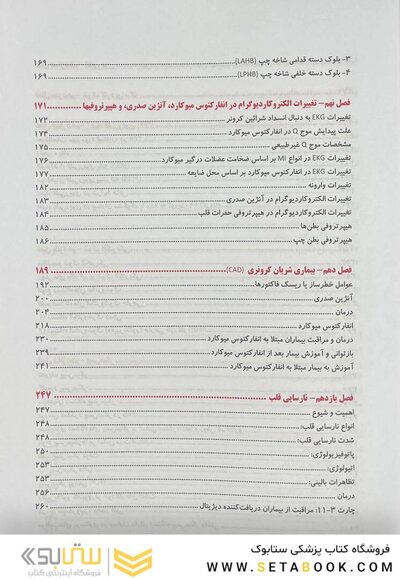 ۳- بلوک دسته قدامی شاخه چپ (LAHB) ۱۶۹
۴- بلوک دسته خلفی شاخه چپ (LPHB) ۱۶۹
فصل نهم- تغییرات الکتروکاردیوگرام در انفارکتوس میوکارد، آنژین صدری، و هیپرتروفیها ۱۷۱
تغییرات EKG به دنبال انسداد شرائین کرونر ۱۷۲
علت پیدایش موج Q در انفارکتوس میوکارد ۱۷۴
مشخصات موج Q غیرطبیعی ۱۷۵
تغییرات EKG در انواع MI بر اساس ضخامت عضلات درگیر میوکارد ۱۷۶
تغییرات EKG در انفارکتوس میوکارد بر اساس محل ضایعه ۱۷۷
تغییرات وارونه ۱۸۲
تغییرات الکتروکاردیوگرام در آنژین صدری ۱۸۳
تغییرات الکتروکاردیوگرام در هیپرتروفی حفرات قلب ۱۸۴
هیپرتروفی بطن‌ها ۱۸۵
هیپرتروفی بطن چپ ۱۸۶
فصل دهم- بیماری شریان کرونری (CAD) ۱۸۹
عوامل خطرساز یا ریسک فاکتورها ۱۹۲
آنژین صدری ۲۰۰
درمان ۲۰۴
انفارکتوس میوکارد ۲۱۸
درمان و مراقبت بیماران مبتلا به انفارکتوس میوکارد ۲۳۰
بازتوانی و آموزش بیمار بعد از انفارکتوس میوکارد ۲۳۹
آموزش به بیمار مبتلا به انفارکتوس میوکارد ۲۴۱
فصل یازدهم- نارسایی قلب ۲۴۷
اهمیت و شیوع ۲۴۷
انواع نارسایی قلب: ۲۴۸
شدت نارسایی قلب: ۲۴۸
پاتوفیزیولوژی: ۲۵۰
اتیولوژی: ۲۵۳
تظاهرات بالینی: ۲۵۳
درمان ۲۵۶
چارت ۳-۱۱: مراقبت از بیماران دریافت‌کننده دیژیتال ۲۶۰
فروشگاه کتاب پزشکی ستابوک
WWW.SETABOOK.COM
ستابوک
فروشگاه اینترنتی کتاب